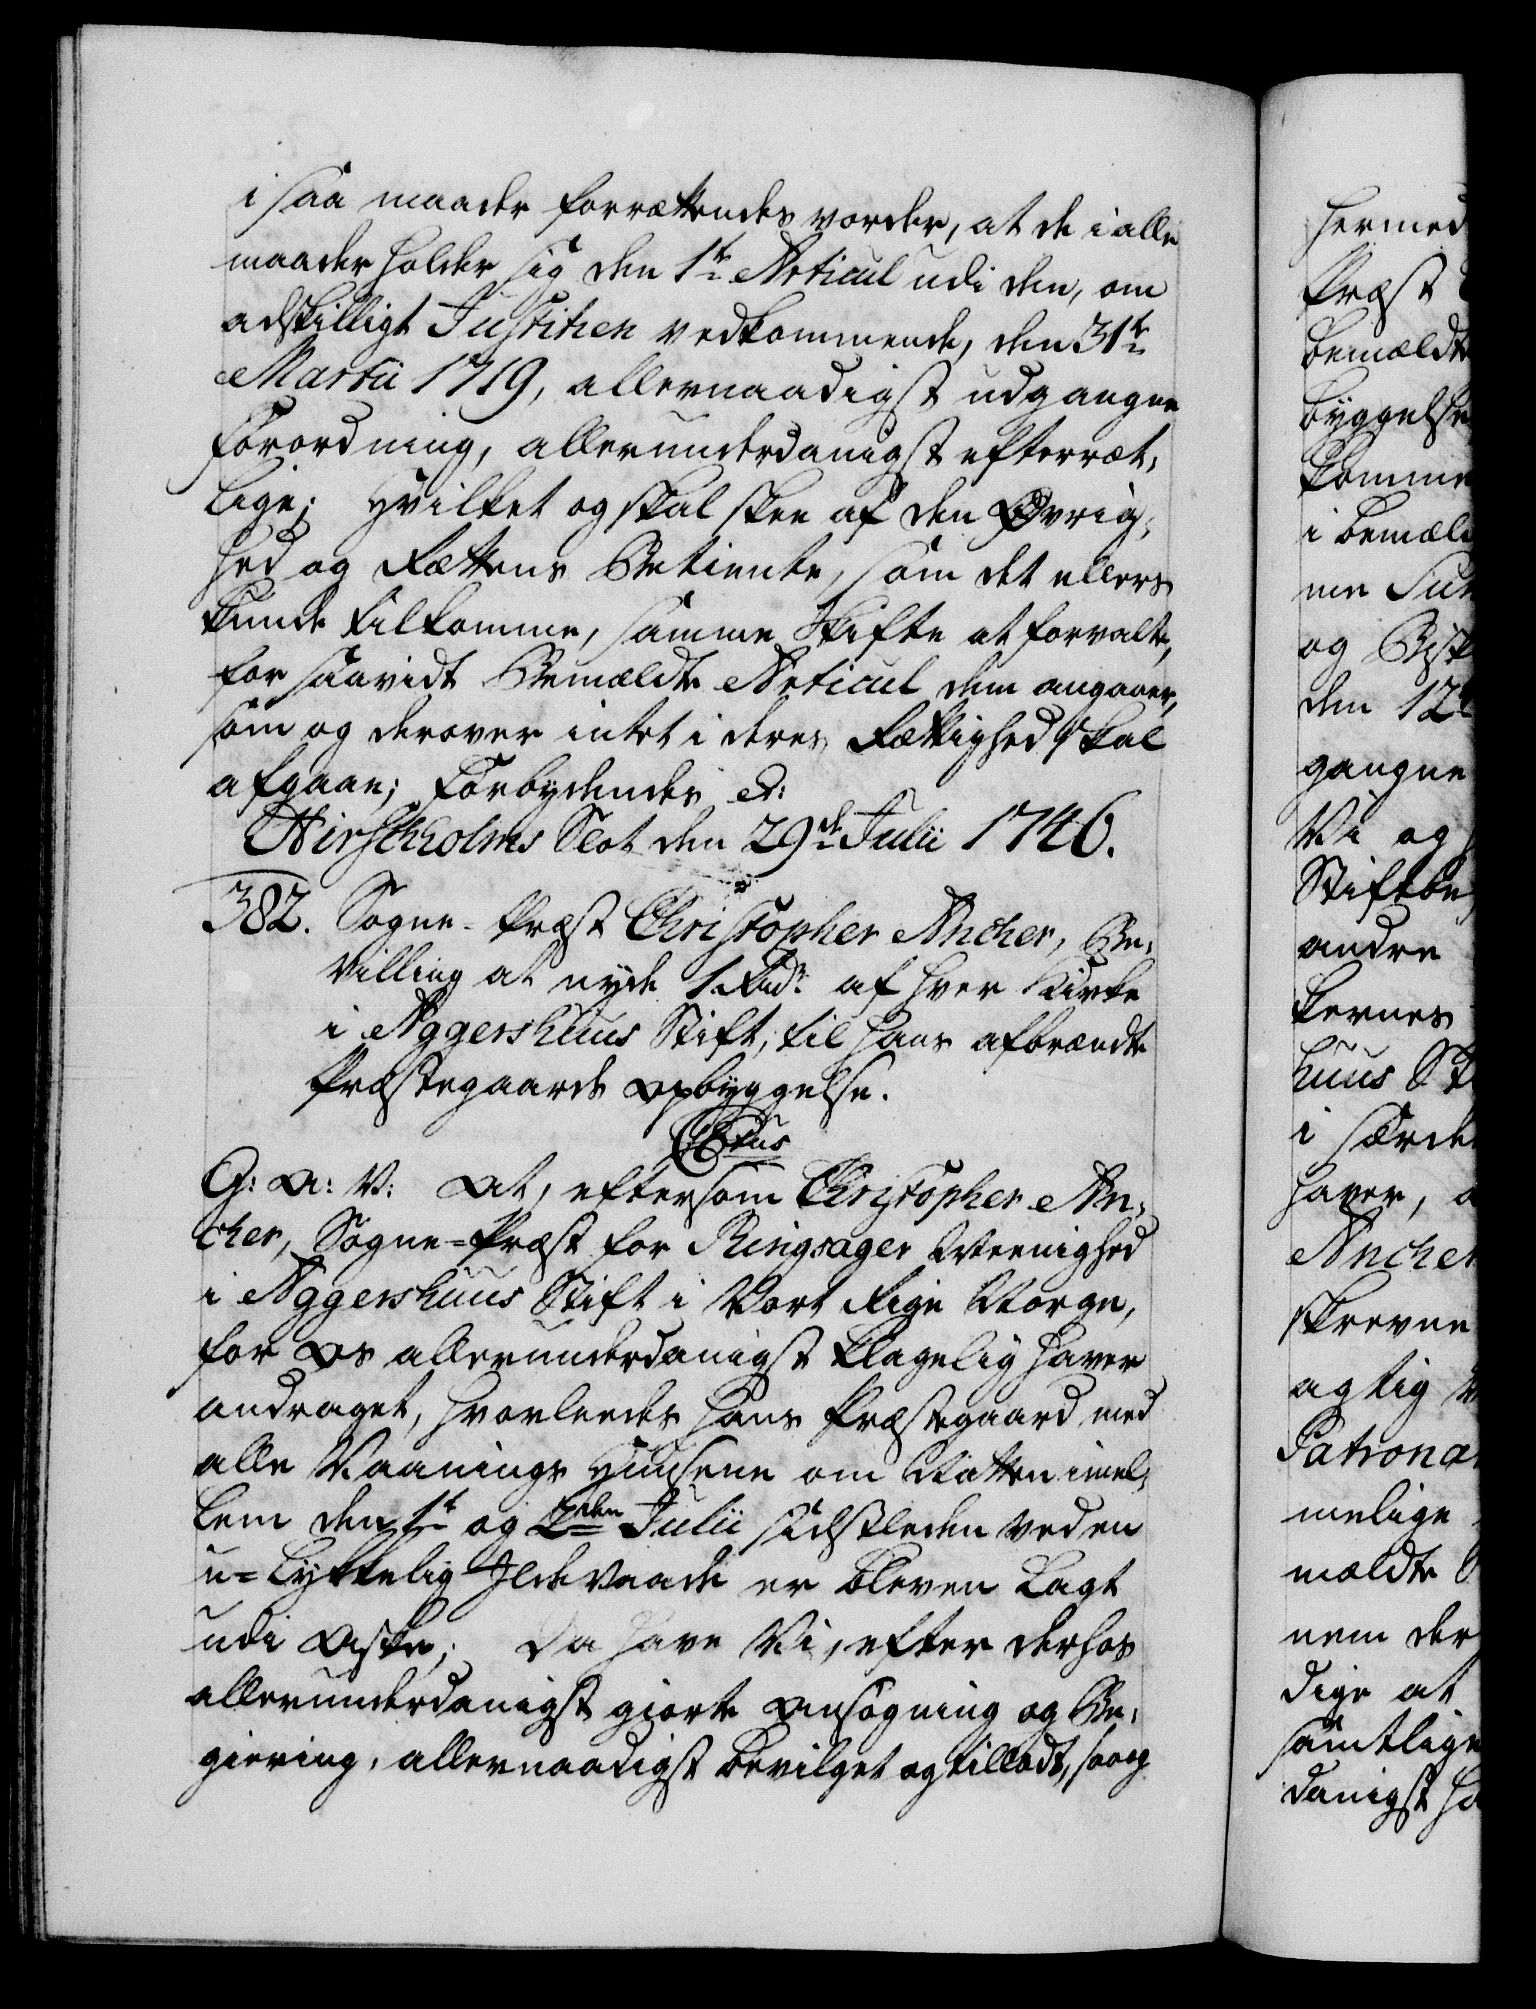 i saa maader forrættendes vorder, at de i alle
maader holder sig den 1te Articul udi den, om
adskilligt Justitien vedkommende, den 31te
Martii 1719, allernaadigst udgangne
Forordning, allerunderdanigst efterret,
lige; Hvilket og skal skee af den Øvrig,
hed og Rettens Betiente, som det ellers
kunde tilkomme, samme Skifte at forvalte,
for saavidt Bemældte Articul dem angaaer,
som og derover intet i deres Rettighed skal
afgaae; Forbydendes &:
Hirschholms Slot den 29de Julii 1746.
382. Sogne-Præst Christopher Ancher, Be,
villing at nyde 1 Rdr: af hver Kirke
i Aggershuus Stift, til hans afbrændte
Præstegaards Opbyggelse.
G: A: V: At, eftersom Christopher An,
cher, Sogne-Præst for Ringsager Meenighed
i Aggershuus Stift i Vort Rige Norge,
for Os allerunderdanigst klagelig haver
andraget, hvorleedes hans Præstegaard med
alle Vaanings Huusene om Natten imel,
lem den 1te og 2den Julii sidstleden ved en
u-lykkelig Ildevaade er bleven Lagt
udi Aske; Da have Vi, efter derhos
allerunderdanigst giorte Ansøgning og Be,
giering, allernaadigst bevilget og tilladt, saa og
hermed
Præst
bemældte
byggelse
komme
i bemæld
me
og
den 12te
gangne
Vi og
Stiftbe
andre
kernes
huus St
i særde
haver,
Ancher
skrevne
agtig
Patrona
melige
mældte
nem der
dige at
samtlige
danigst ha